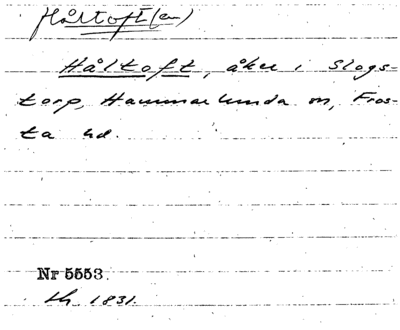 Håltoft(en)
Håltoft, åker i Slogs-
torp, Hammarlunda sn, Fros-
ta hd.
Nr 5553.
1831.